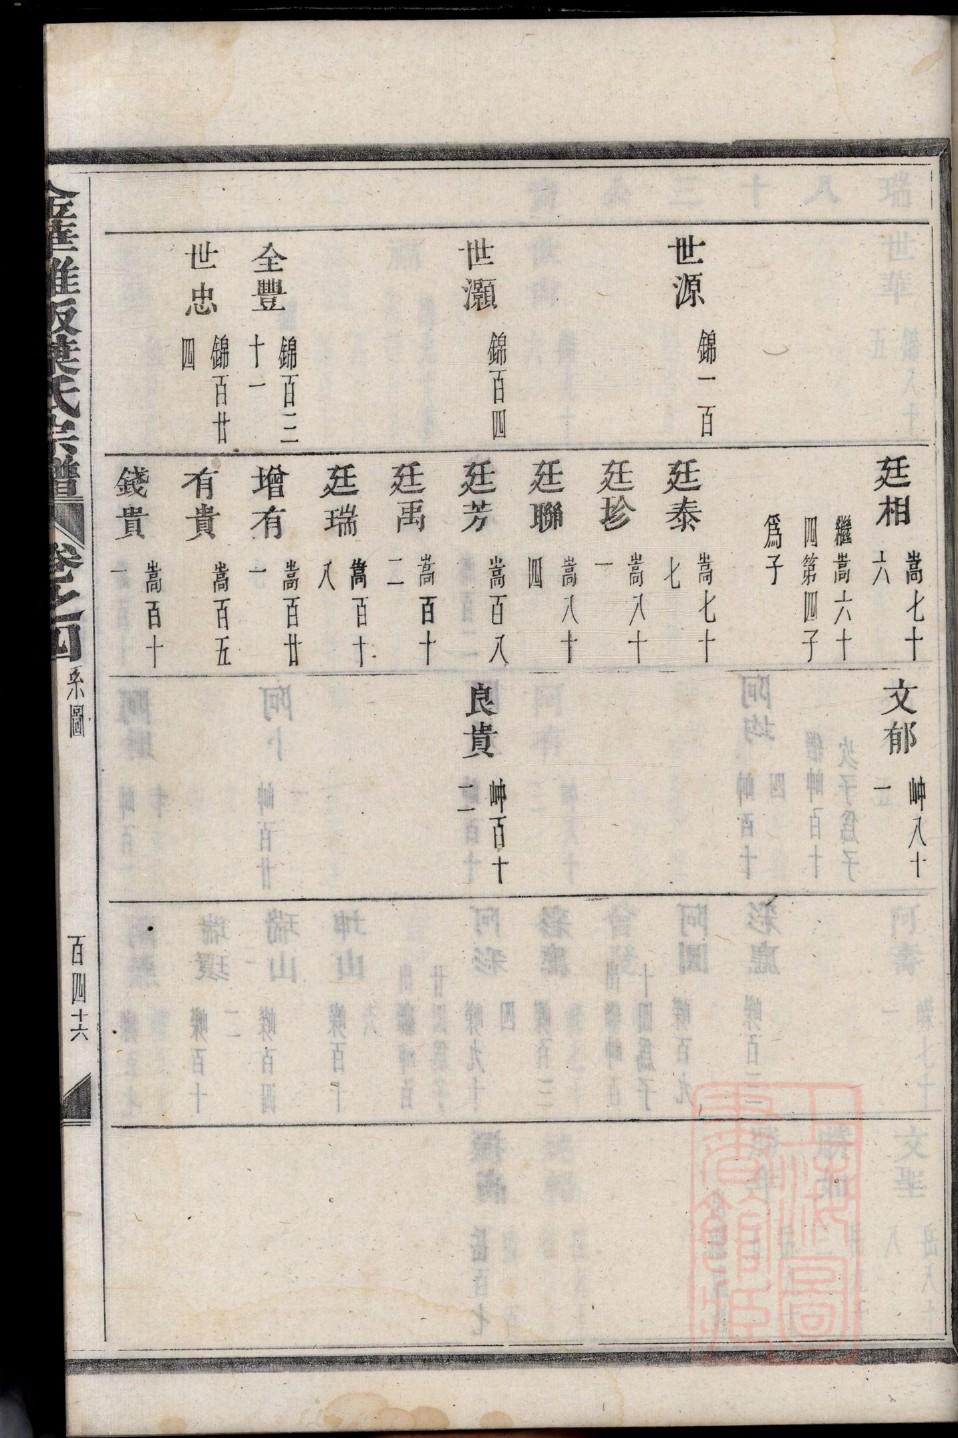 世源 錦一百
世灝 錦百四
全豐 錦百三十一
世忠 錦百廿四
廷相 嵩七十六
繼嵩六十四第四子爲子
廷泰 嵩七十七
廷珍 嵩八十一
廷聯 嵩八十四
廷芳 嵩百八
廷禹 嵩百十二
廷瑞 嵩百十八
增有 嵩百廿一
有貴 嵩百五
錢貴 嵩百十一
文郁 岫八十一
良貴 岫百十二
葉氏宗譜 卷之四 系圖 百四十六